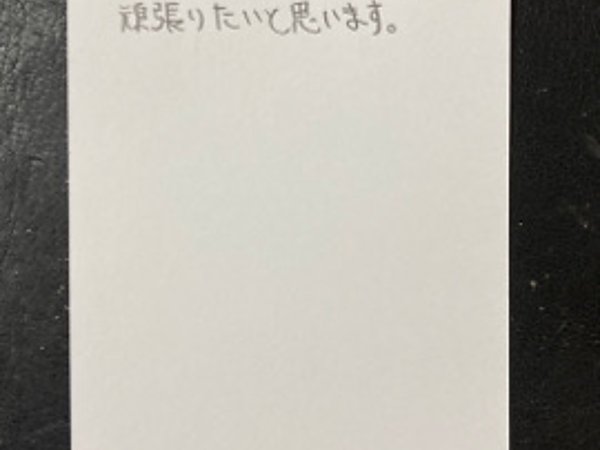 頑張りたいと思います。